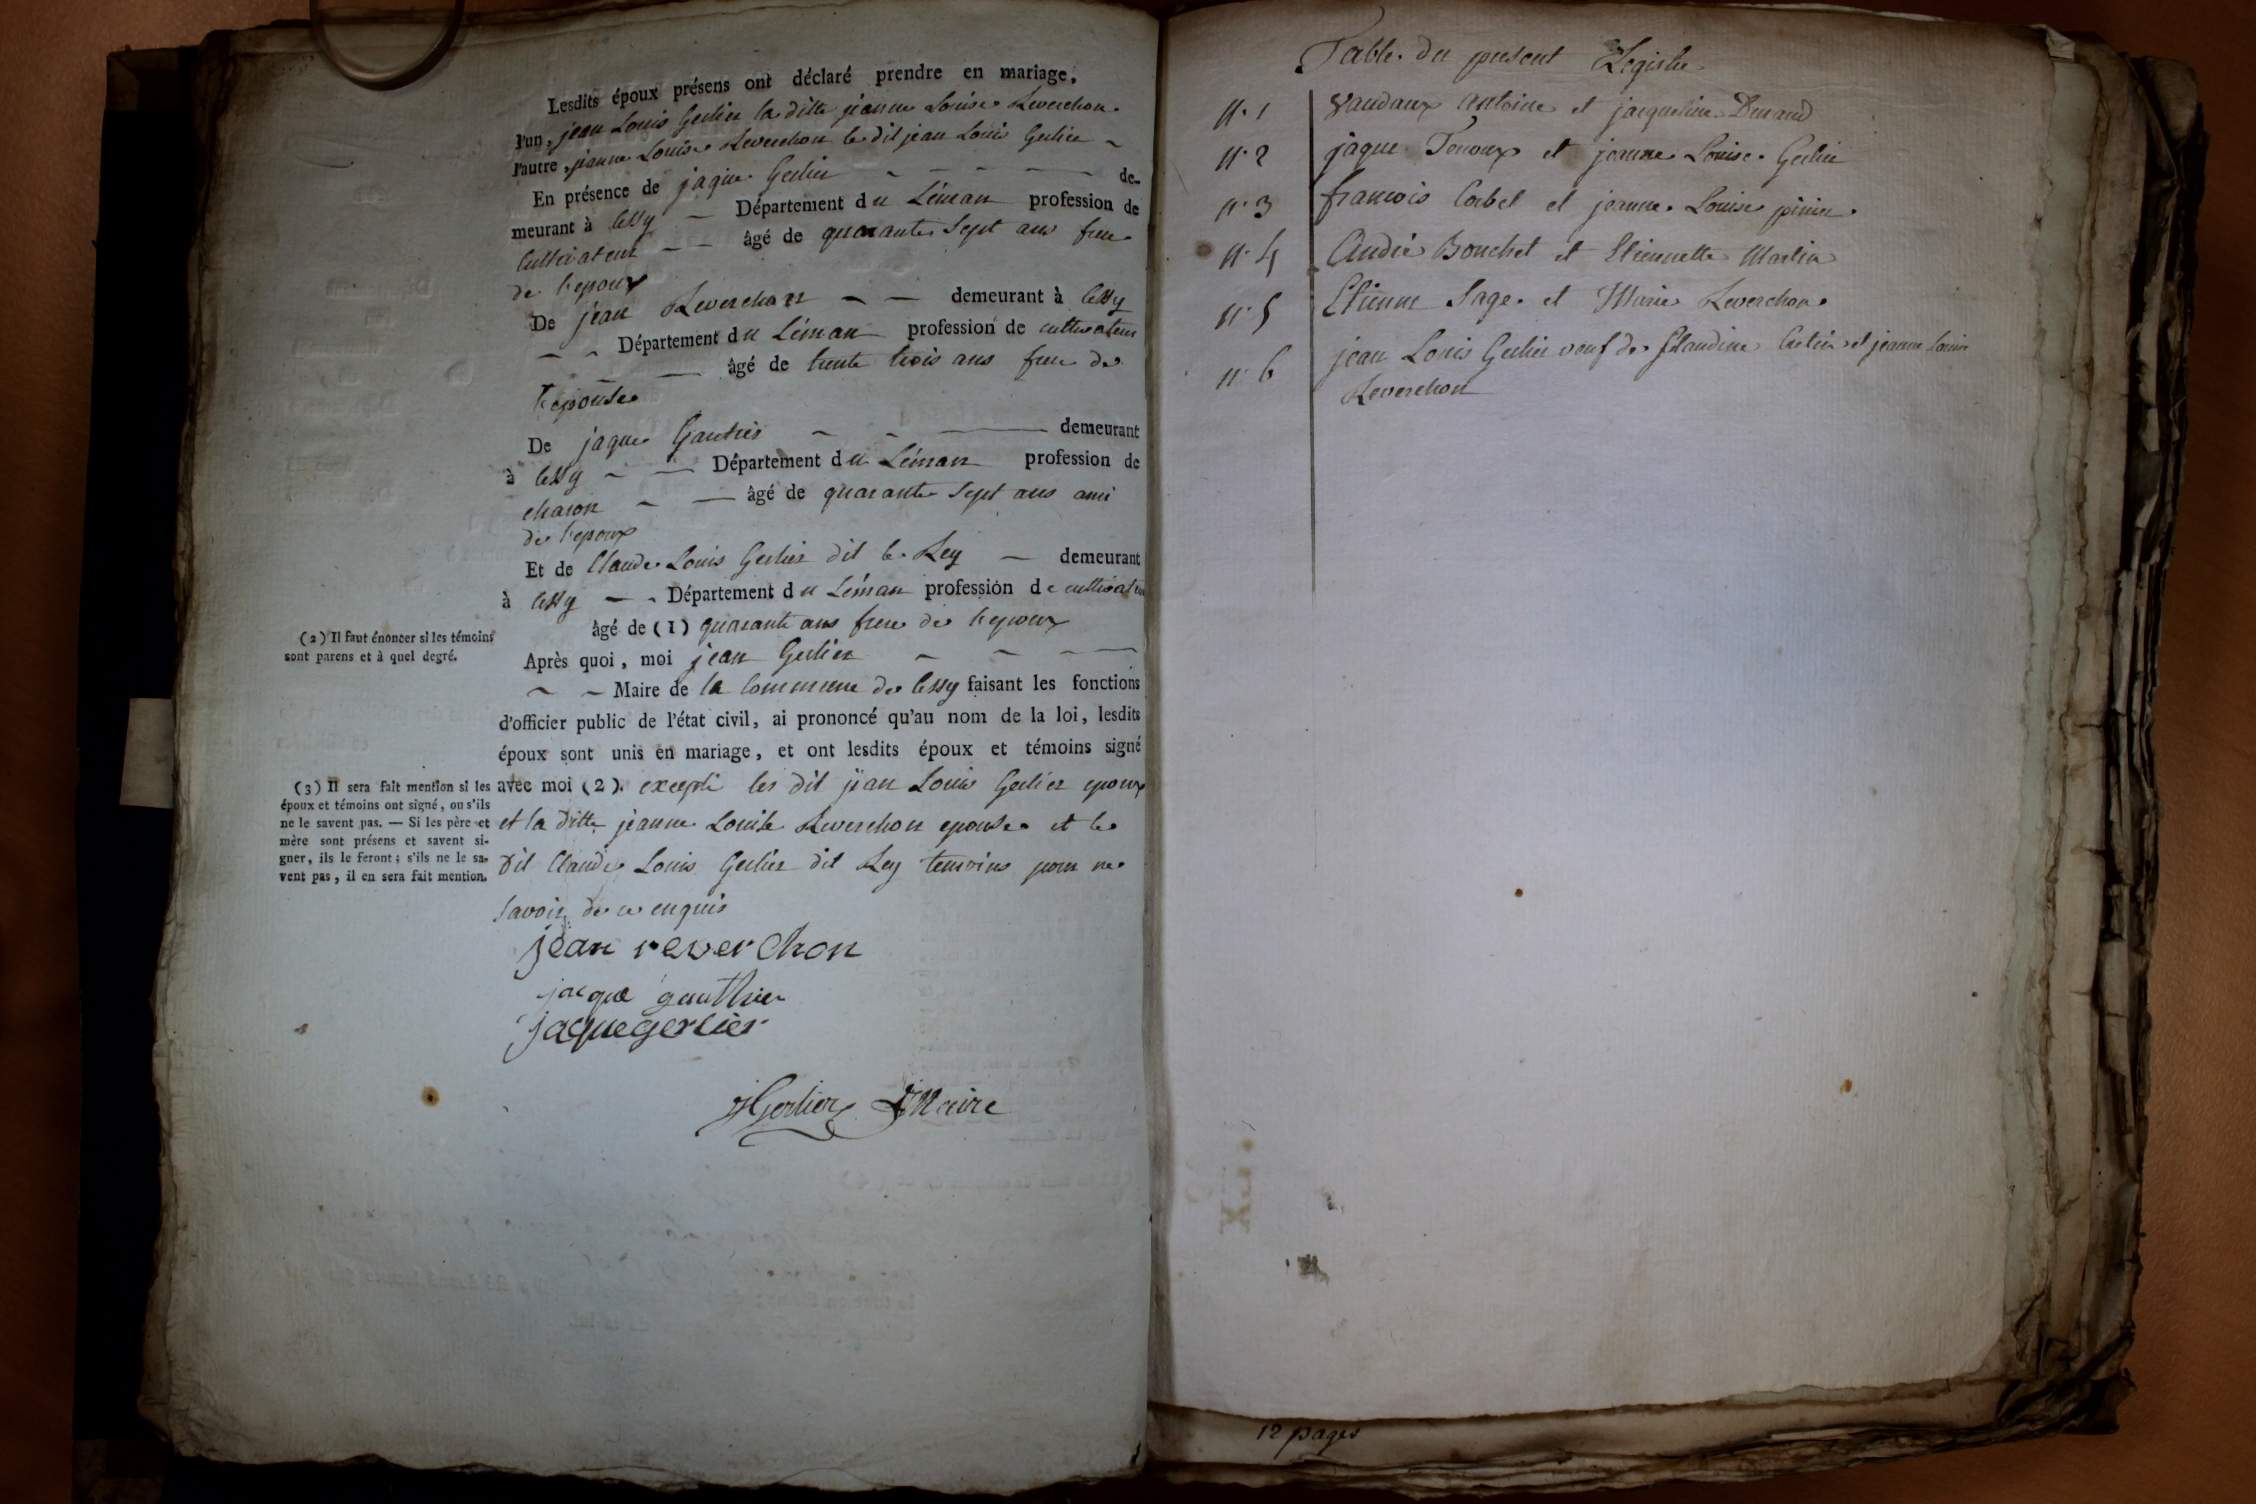 Lesdits époux présens ont déclaré prendre en mariage,
l'un, jean Louis Gerlier la ditte jeanne Louise Reverchon
l'autre, jeanne Louise Reverchon le dit jean Louis Gerlier
En présence de jaque Gerlier de-
meurant à Cessy Département du Léman profession de
Cultivateur âgé de quarante sept ans frere
de l'epoux
De jean Reverchon demeurant à Cessy
Département du Léman profession de cultivateur
âgé de trente trois ans frere de
l'epouse
De jaque Gautier demeurant
à Cessy Département du Léman profession de
charon âgé de quarante sept ans ami
de l'epoux
Et de Claude Louis Gerlier dit le Rey demeurant
à Cessy Département du Léman profession de cultivateur
âgé de (1) quarante ans frere de l'epoux
(2) Il faut énoncer si les témoins
sont parens et à quel degré.
Après quoi, moi jean Gerlier
Maire de la commune de Cessy faisant les fonctions
d'officier public de l'état civil, ai prononcé qu'au nom de la loi, lesdits
époux sont unis en mariage, et ont lesdits époux et témoins signé
avec moi (2). excepté les dit jean Louis Gerlier epoux
et la ditte jeanne Louise Reverchon epouse et le
dit Claude Louis Gerlier dit Rey temoins pour ne
savoir de ce enquis
(3) Il sera fait mention si les
époux et témoins ont signé, ou s'ils
ne le savent pas. — Si les père et
mère sont présens et savent si-
gner, ils le feront; s'ils ne le sa-
vent pas, il en sera fait mention.
jean reverchon
jacque gauthier
jaque gerlier
Gerlier Maire
Table du present Registre
n. 1 Vaudaux Antoine et jacqueline Durand
n. 2 jaque et jeanne Louise Gerlier
n. 3 francois Corbet et jeanne Louise
n. 4 André Bouchet et Etiennette Martin
n. 5 Etienne Sage et Marie Reverchon
n. 6 jean Louis Gerlier veuf de Claudine et jeanne Louise
Reverchon
12 pages